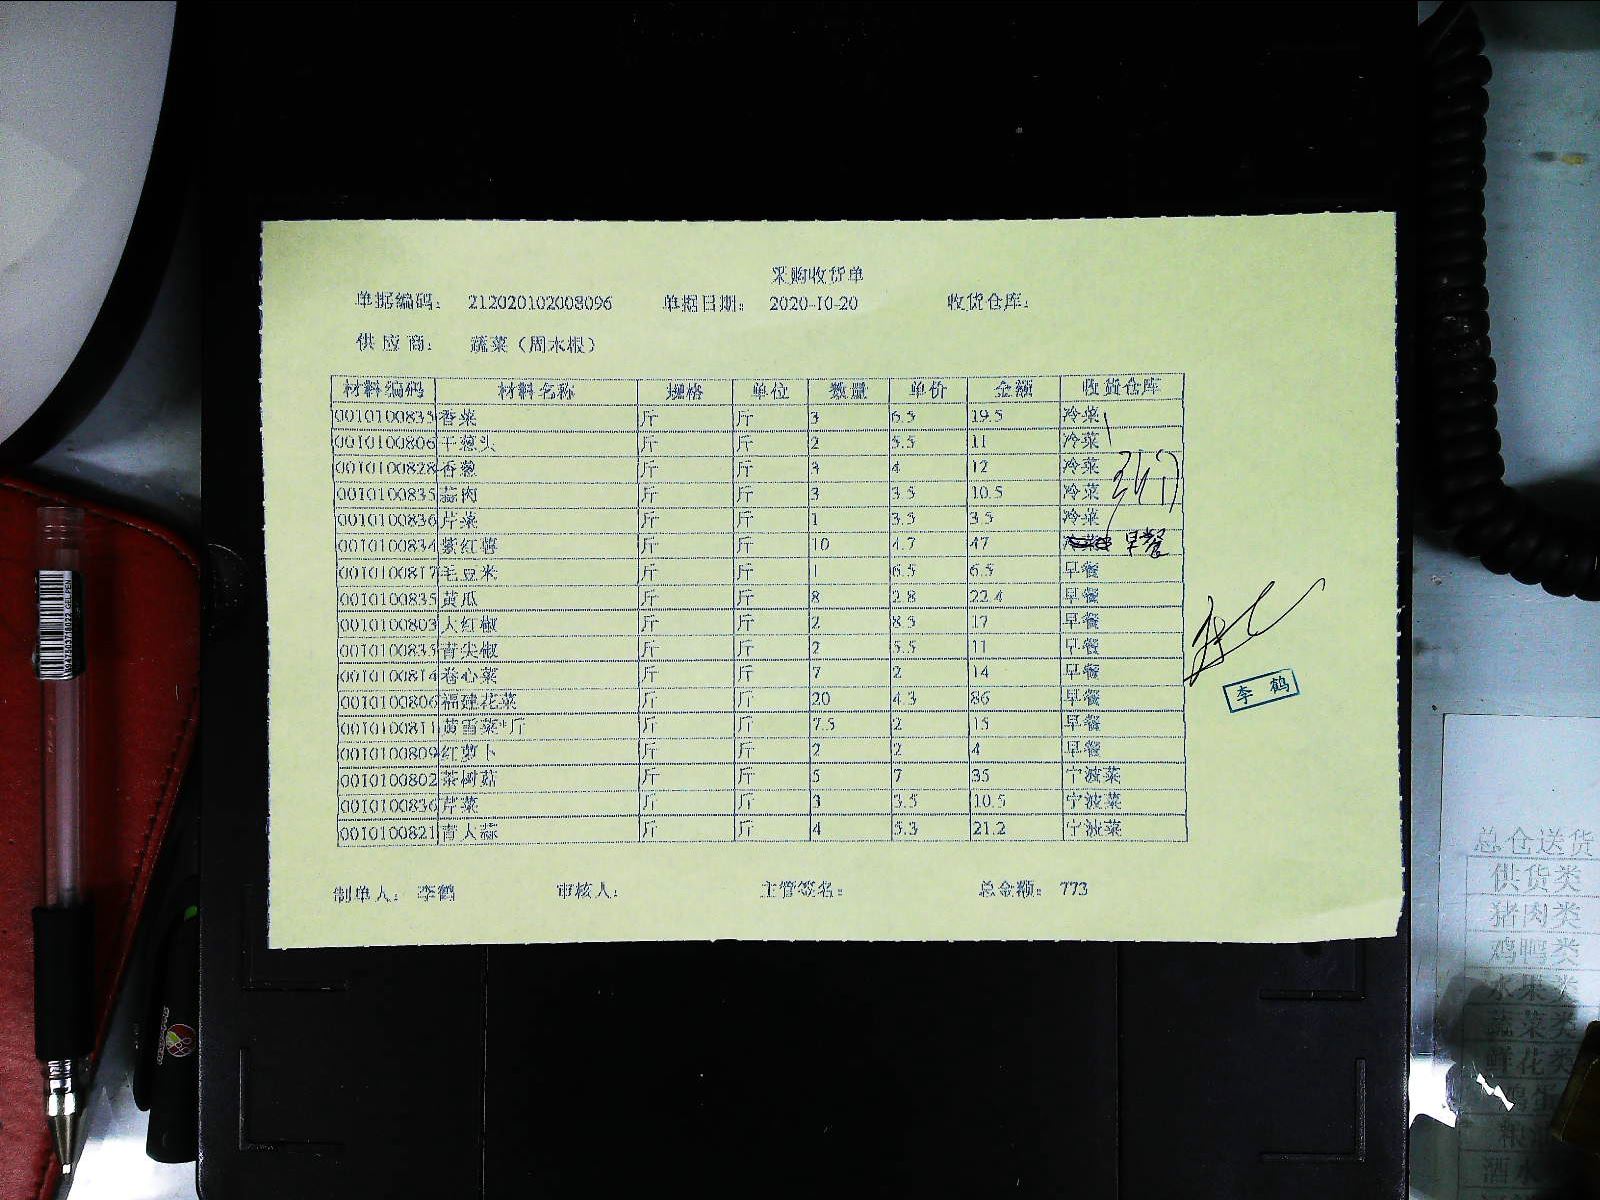 采购收货单
单据编码： 212020102008096 单据日期： 2020-10-20 收货仓库：
供 应 商： 蔬菜（周水根）
材料编码 材料名称 规格 单位 数量 单价 金额 收货仓库
0010100835 香菜 斤 斤 3 6.5 19.5 冷菜
0010100806 干葱头 斤 斤 2 5.5 11 冷菜
0010100828 香葱 斤 斤 3 4 12 冷菜
0010100835 蒜肉 斤 斤 3 3.5 10.5 冷菜
0010100836 芹菜 斤 斤 1 3.5 3.5 冷菜
0010100834 紫红薯 斤 斤 10 4.7 47 早餐
0010100817 毛豆米 斤 斤 1 6.5 6.5 早餐
0010100835 黄瓜 斤 斤 8 2.8 22.4 早餐
0010100803 大红椒 斤 斤 2 8.5 17 早餐
0010100835 青尖椒 斤 斤 2 5.5 11 早餐
0010100814 卷心菜 斤 斤 7 2 14 早餐
0010100806 福建花菜 斤 斤 20 4.3 86 早餐
0010100811 黄雪菜*斤 斤 斤 7.5 2 15 早餐
0010100809 红萝卜 斤 斤 2 2 4 早餐
0010100802 茶树菇 斤 斤 5 7 35 宁波菜
0010100836 芹菜 斤 斤 3 3.5 10.5 宁波菜
0010100821 青大蒜 斤 斤 4 5.3 21.2 宁波菜
李鹤
制单人： 李鹤 审核人： 主管签名： 总金额： 773
总仓送货
供货类
猪肉类
鸡鸭类
水果类
蔬菜类
鲜花类